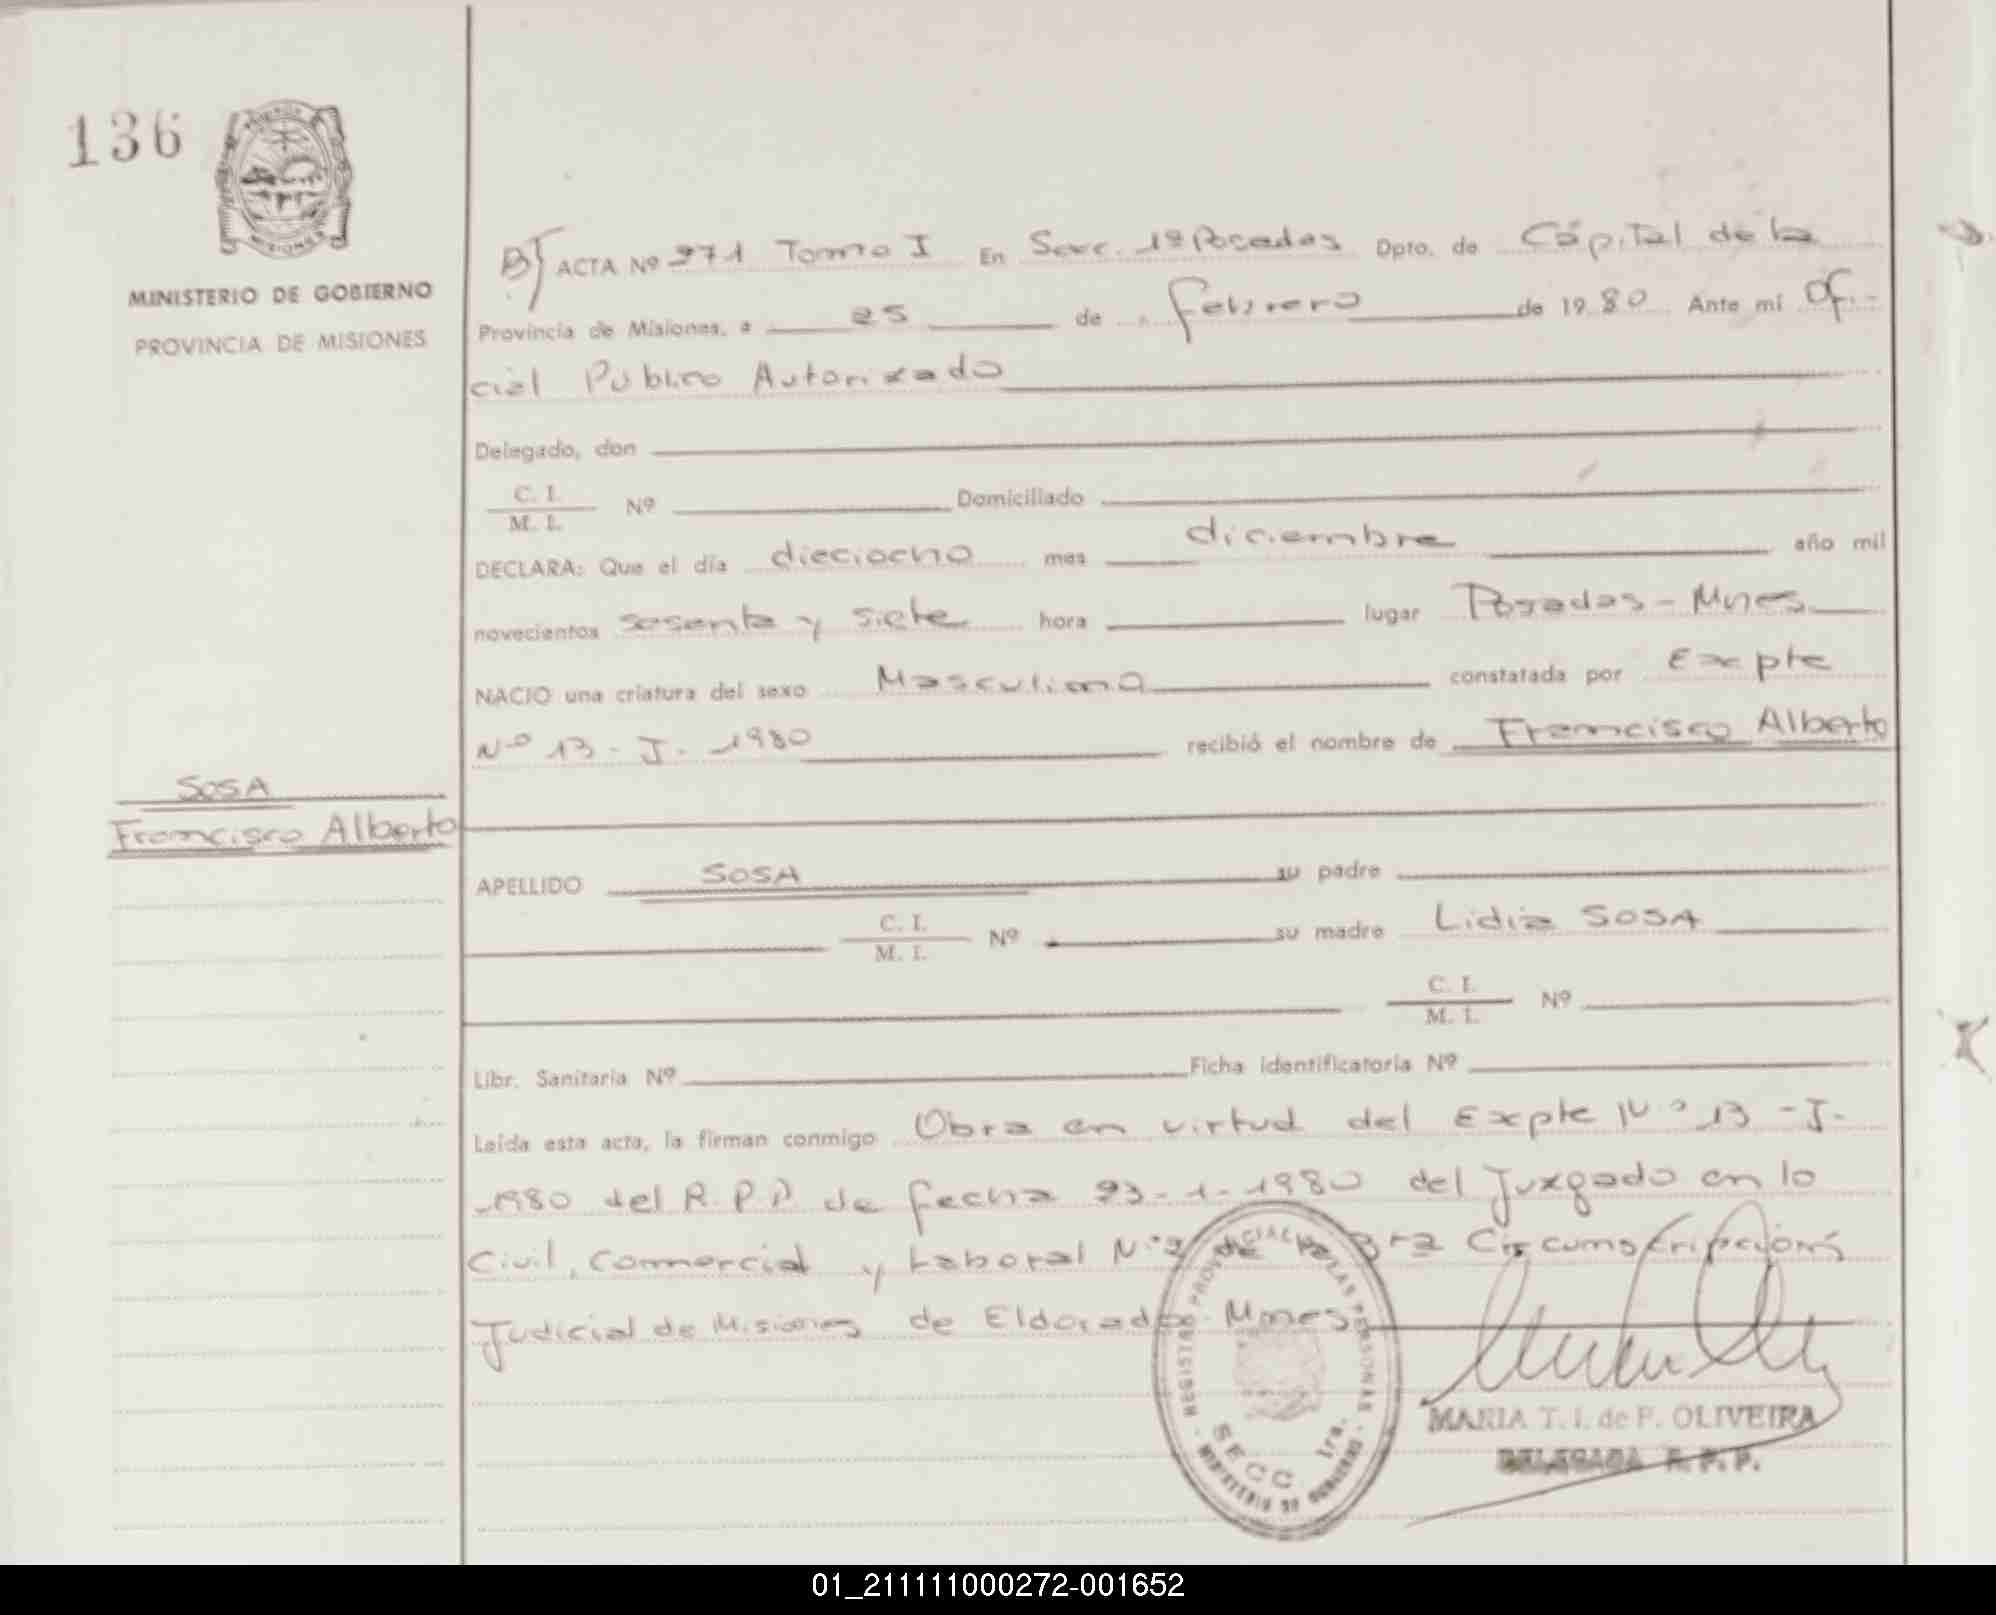 136
MINISTERIO DE GOBIERNO
PROVINCIA DE MISIONES
SOSA
Francisco Alberto
B) ACTA Nº 271 Tomo I En Secc. 1ª Posadas Dpto. de Cápital de la
Provincia de Misiones, a 25 de febrero de 1980 Ante mi Ofi-
cial Publico Autorizado
Delegado, don
C. I.
M. I. Nº Domiciliado
DECLARA: Que el día dieciocho mes diciembre año mil
novecientos sesenta y siete hora lugar Posadas - Mnes
NACIO una criatura del sexo Masculino constatada por Expte
Nº 13 - J - 1980 recibió el nombre de Francisco Alberto
APELLIDO SOSA su padre
C. I.
M. I. Nº su madre Lidia SOSA
C. I.
M. I. Nº
Libr. Sanitaria Nº Ficha identificatoria Nº
Leída esta acta, la firman conmigo Obra en virtud del Expte Nº 13 - J-
1980 del R.P.P. de fecha 23-1-1980 del Juzgado en lo
Civil, Comercial y Laboral Nº 2 de la 3ra Circumscripción
Judicial de Misiones de Eldorado Mnes
REGISTRO PROVINCIAL DE LAS PERSONAS
SECC 1ra.
MINISTERIO DE GOBIERNO
MARIA T. I. de P. OLIVEIRA
DELEGADA R. P. P.
01_211111000272-001652